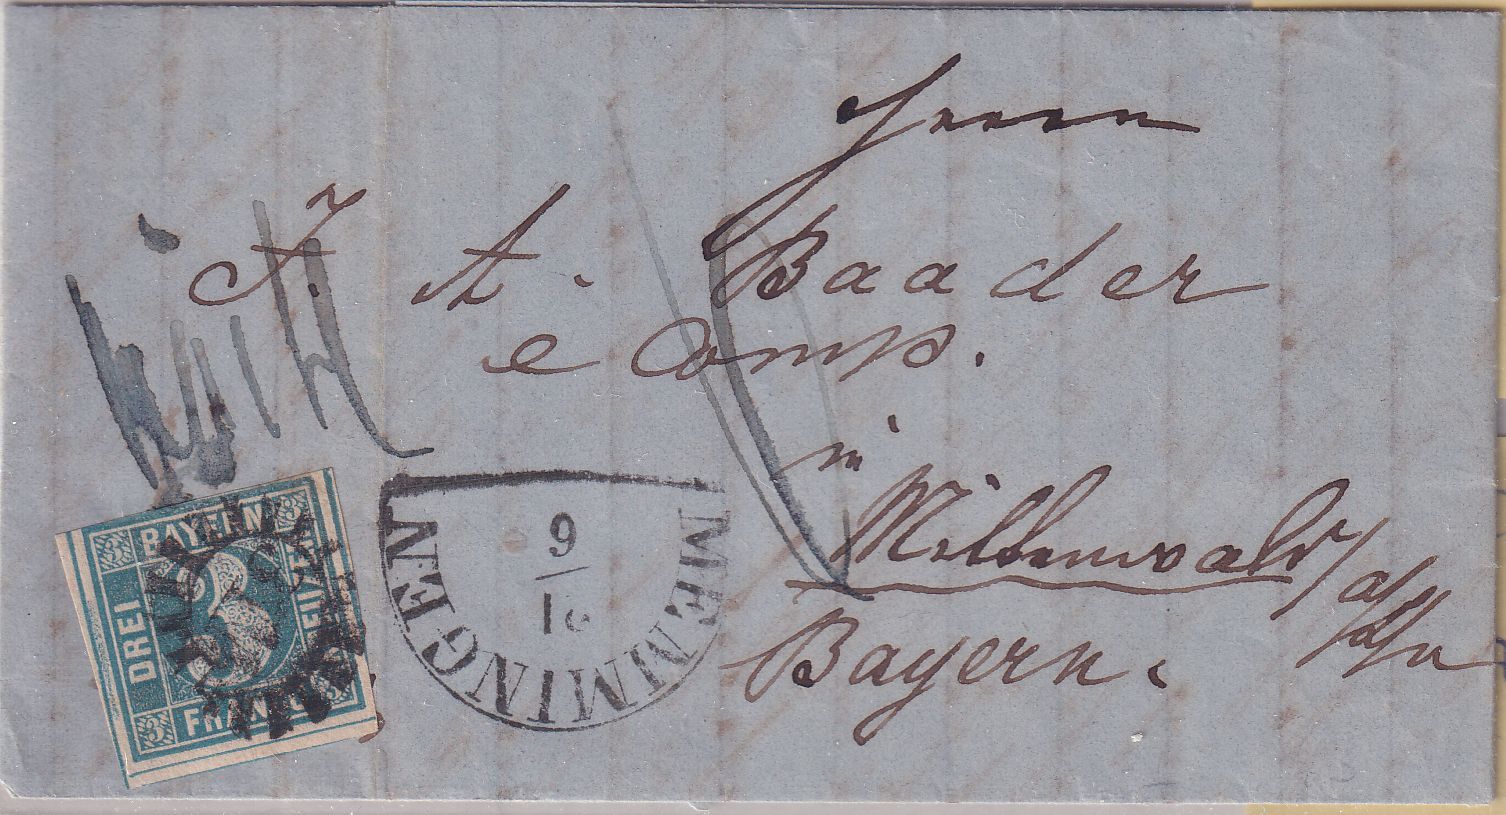 Herrn
J. A. Baader
e Comp.
in
Mittenwald
Bayern.
BAYERN
DREI
3
KREUZER
FRANCO
MEMMINGEN
9